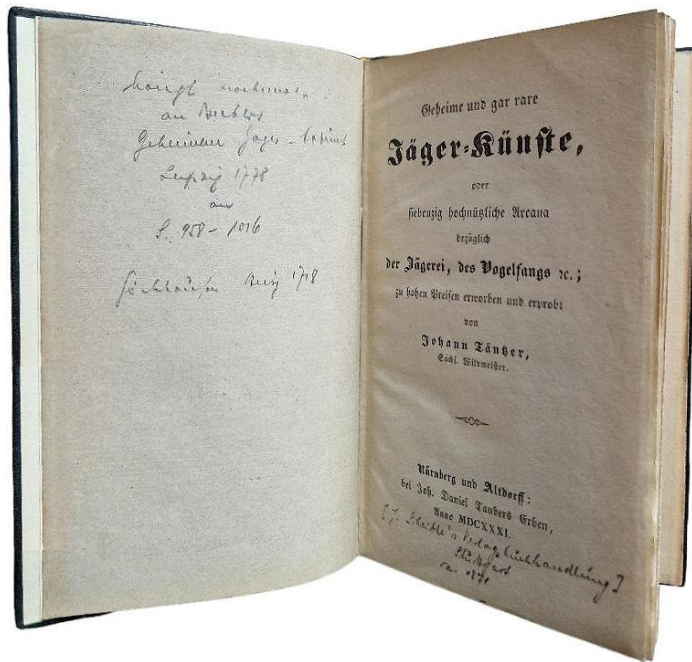 an
Leipzig 1778
S. 958 – 1016
1718
Geheime und gar rare
Jäger-Künste,
oder
siebenzig hochnützliche Arcana
bezüglich
der Jägerei, des Vogelfangs ꝛc.;
zu hohen Preisen erworben und erprobt
von
Johann Täntzer,
Sächs. Wildmeister.
Nürnberg und Altdorff:
bei Joh. Daniel Taubers Erben,
Anno MDCXXXI.
Verlagsbuchhandlung]
Stuttgart
ca. 1871